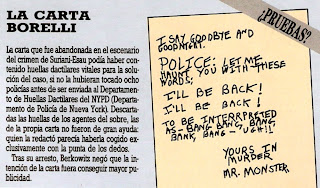 LA CARTA
BORELLI
La carta que fue abandonada en el escenario
del crimen de Suriani-Esau podía haber con-
tenido huellas dactilares vitales para la solución
del caso, si no la hubieran tocado ocho
policías antes de ser enviada al Departamen-
to de Huellas Dactilares del NYPD (Departa-
mento de Policía de Nueva York). Descarta-
das las huellas de los agentes del sobre, las
de la propia carta no fueron de gran ayuda:
quien la redactó parecía haberla cogido ex-
clusivamente con la punta de los dedos.
Tras su arresto, Berkowitz negó que la in-
tención de la carta fuera conseguir mayor pu-
blicidad.
¿PRUEBAS?
I SAY GOODBYE AND
GOODNIGHT.
POLICE: LET ME
HAUNT YOU WITH THESE
WORDS;
I'LL BE BACK!
I'LL BE BACK!
TO BE INTERPRETED
AS - BANG BANG BANG,
BANK, BANG - UGH!!
YOURS IN
MURDER
MR. MONSTER